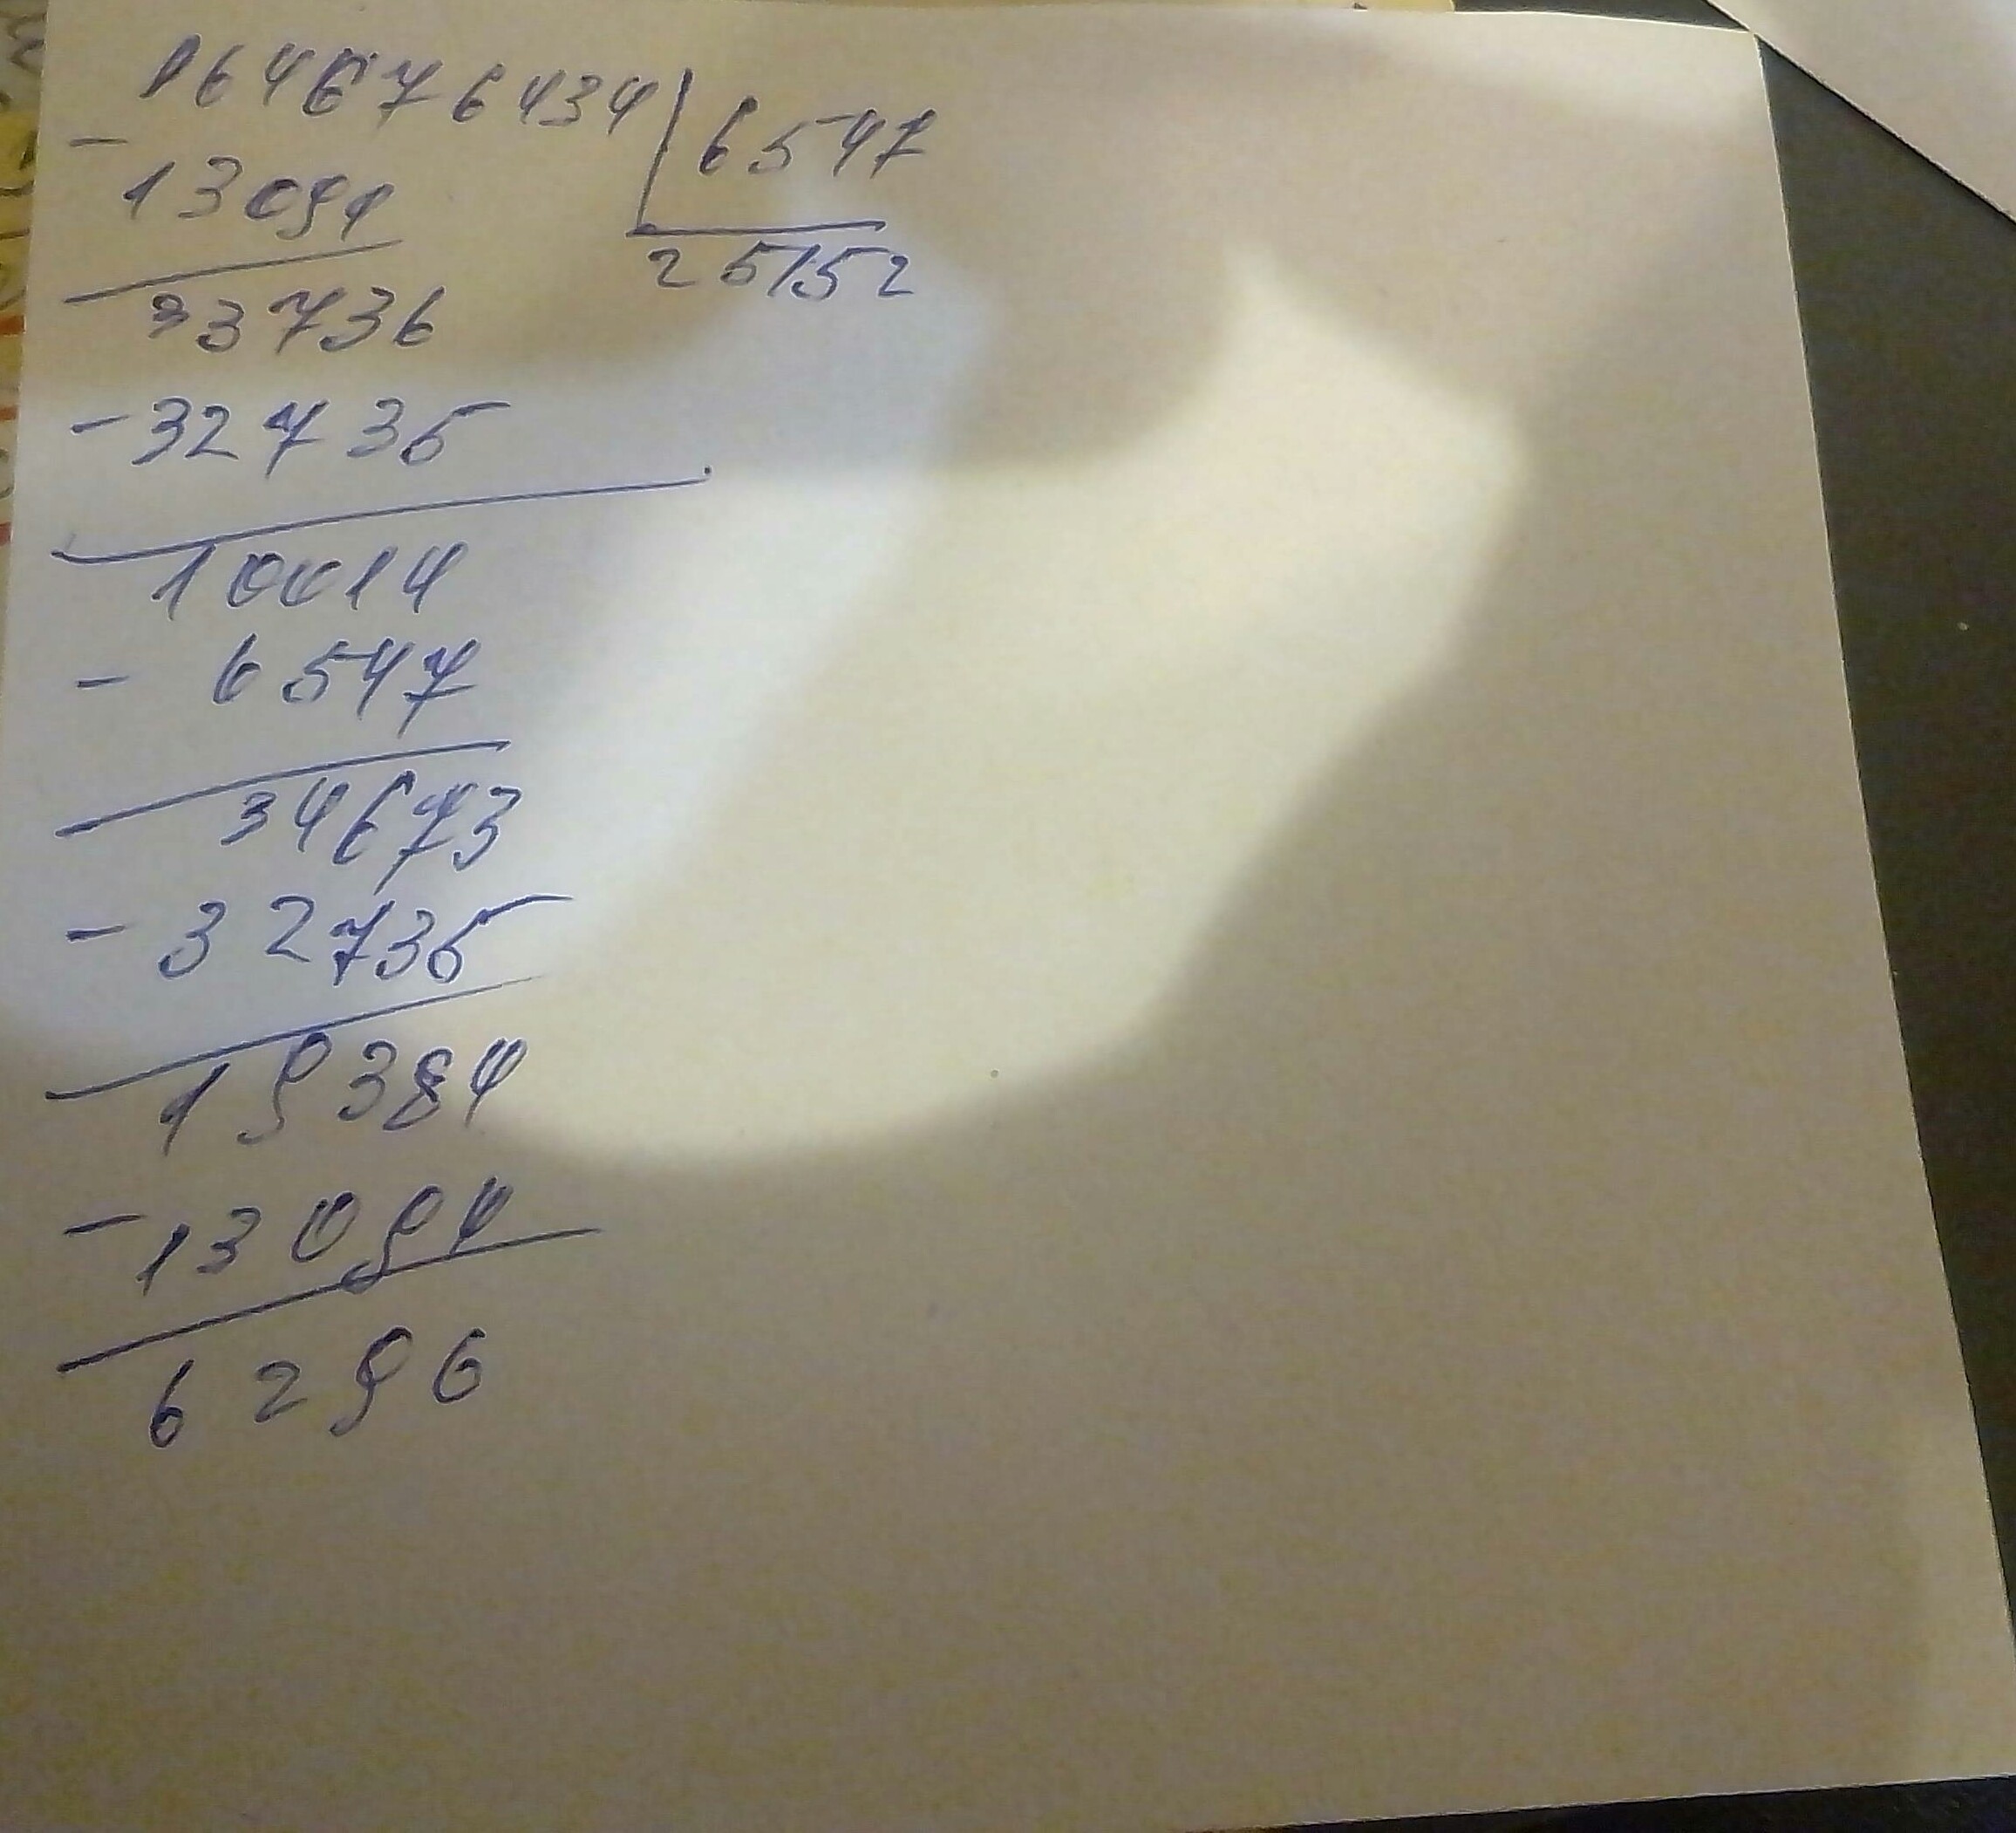 164676434 | 6547
- 13094
25152
33736
- 32735
10014
- 6547
34673
- 32735
19384
- 13094
6296